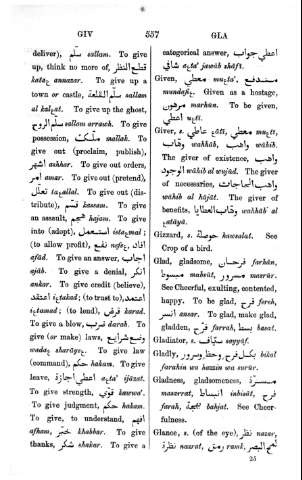 GIV 537 GLA
deliver), سلم sallam. To give
up, think no more of, قطع النظر
kataɛ annazar. To give up a
town or castle, سلم القلعة sallam
al kalɛat. To give up the ghost,
سلم الروح sallam arrauh. To give
possession, ملك mallak. To
give out (proclaim, publish),
اشهر ashhar. To give out orders,
امر amar. To give out (pretend),
تعلل taɛallal. To give out (dis-
tribute), قسم kassam. To give
an assault, هجم hajam. To give
into (adopt), استعمل istaɛmal;
(to allow profit), نفع nafaɛ, افاد
afád. To give an answer, اجاب
ajáb. To give a denial, انكر
ankar. To give credit (believe),
اعتقد iɛtakad; (to trust to), اعتمد
iɛtamad; (to lend), قرض karad.
To give a blow, ضرب darab. To
give (or make) laws, وضع شرايع
wadaɛ sharáyeɛ. To give law
(command), حكم hakam. To give
leave, اعطي اجازة aɛta' ijázat.
To give strength, قوي kawwa'.
To give judgment, حكم hakam.
To give, to understand, افهم
afham, خبر khabbar. To give
thanks, شكر shakar. To give a
categorical answer, اعطي جواب
شافي aɛta' jawáb sháfí.
Given, معطي muɛta'.
Given as a hostage,
مرهون marhún. To be given,
اعطي
Giver, s. معطي muɛtí,
وهاب wahháb, واهب wáhib.
The giver of existence, واهب
الوجود wáhib al wujúd. The giver
of necessaries, واهب الحاجات
wáhib al háját. The giver of
benefits, وهاب العطايا wahháb al
ɛatáyá.
Gizzard, s. حوصلة hawsalat. See
Crop of a bird.
Glad, gladsome, فرحان farhán,
مبسوط mabsút, مسرور masrúr.
See Cheerful, exulting, contented,
happy. To be glad, فرح fareh,
انسر ansar. To glad, make glad,
gladden, فرح farrah, بسط basat.
Gladiator, s. سياف sayyáf.
Gladly, بكل فرح وحظ وسرور bikol
farahin wa hazzin wa surúr.
Gladness, gladsomeness, مسرة
masarrat, انبساط inbisát, فرح
farah, بهجة bahjat. See Cheer-
fulness.
Glance, s. (of the eye), نظر nazar,
نظرة nazrat, رمق ramk, لمح البصر
25